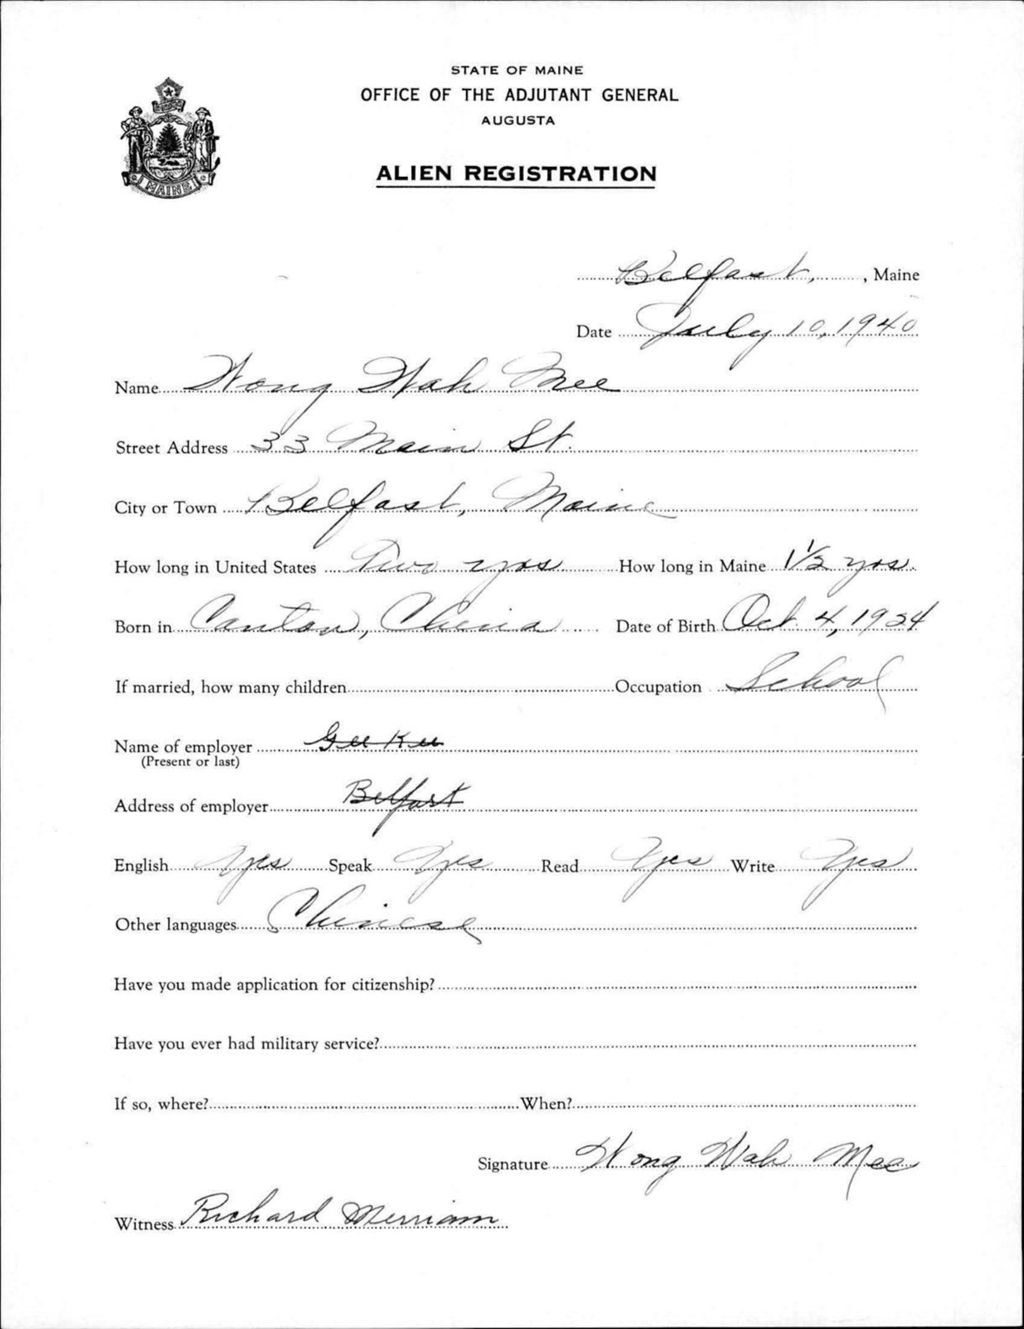 STATE OF MAINE
OFFICE OF THE ADJUTANT GENERAL
AUGUSTA
ALIEN REGISTRATION
MAINE
Belfast, , Maine
Date July 10, 1940
Name Wong Wah Mee
Street Address 33 Main St.
City or Town Belfast, Maine
How long in United States Two yrs How long in Maine 1 1/2 yrs.
Born in Canton, China Date of Birth Oct. 4, 1924
If married, how many children Occupation School
Name of employer Gee Kee
(Present or last)
Address of employer Belfast
English Yes Speak Yes Read Yes Write Yes
Other languages Chinese
Have you made application for citizenship?
Have you ever had military service?
If so, where? When?
Signature Wong Wah Mee
Witness Richard Merriam